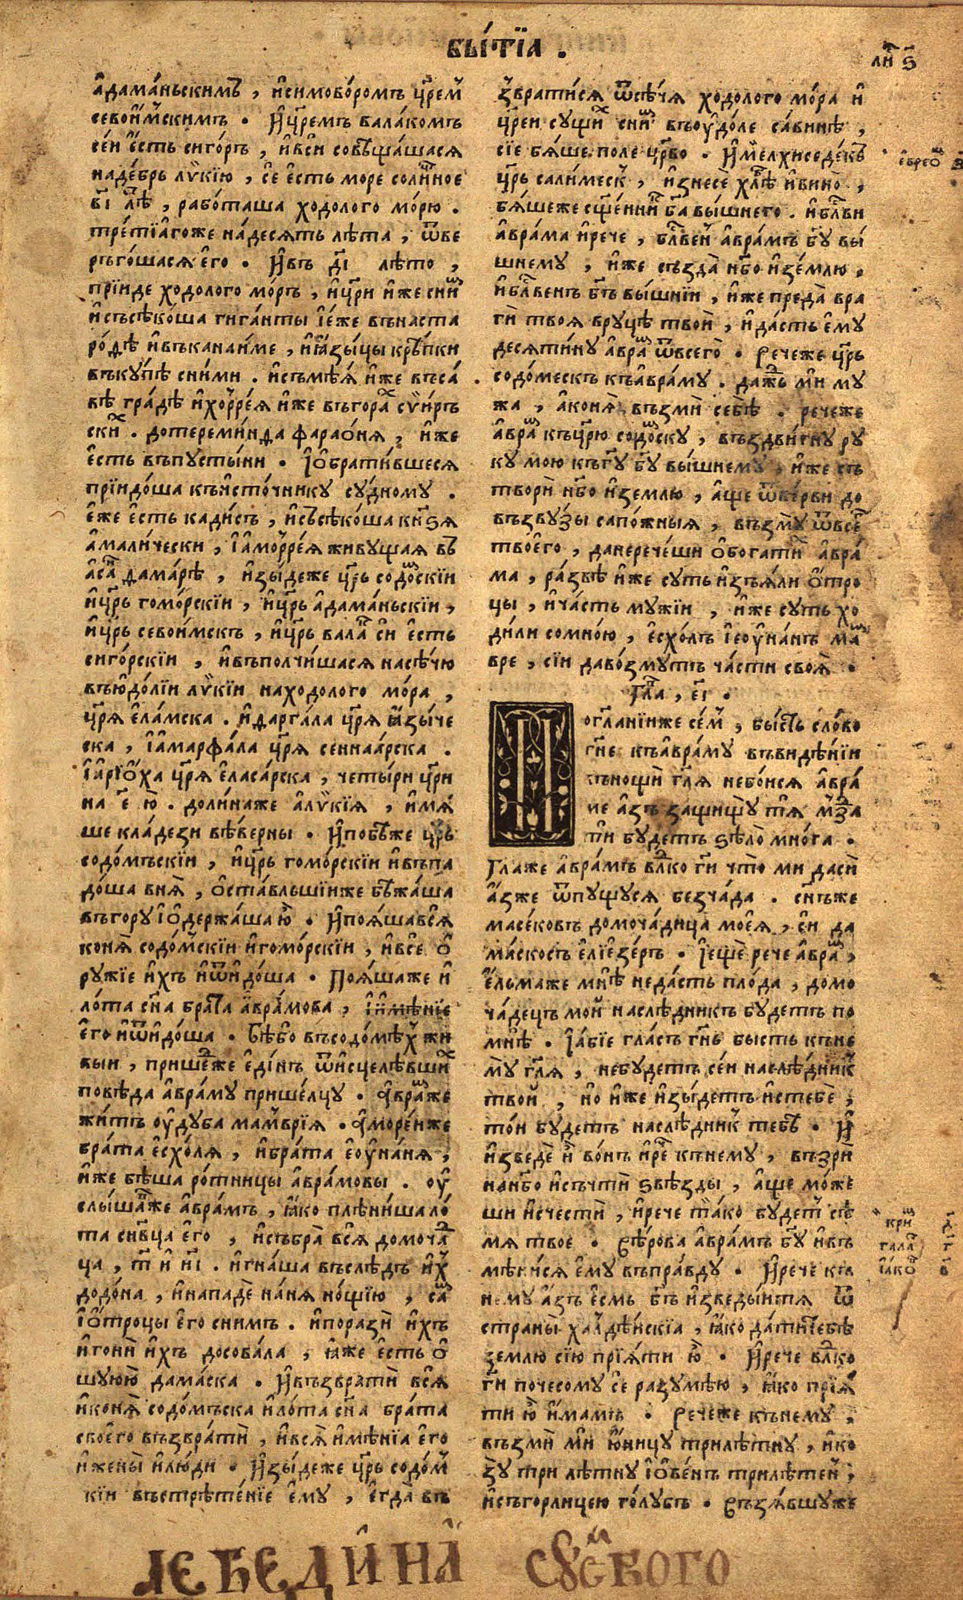 бы́тїа .
ли ѕ҃
а҆дама́ньскимъ , и҆симобо́ромъ цр҃ем
севои́мскимъ . И҆цр҃емъ вала́комъ
се́и е҆́сть сиго́ръ , и҆вси совѣща́шася
наде́брь лѵ̑кїю , се́ е҆сть море соли́ное
в҃і лѣ , рабо́таша ходолого мо́рю .
тре́тїагоже на́десять лѣ́та , ѿве
рго́шася е҆го . И҆въ д҃і лѣ́то ,
прїи́де ходолого мо́ръ , и҆цр҃и и҆́же сни
и҆съсѣкоша гига́нты і҆е́же въна́ста
ро́дѣ и҆въкана́име , и҆ꙗ҆зы́цы крѣ́пки
въку́пѣ сни́ми . и҆съмѣ́я и҆́же въса́
вѣ гра́дѣ и҆хоррѐя и҆́же въгора сѵи́ръ
ски . дотереми́нда фарао́ня , и҆́же
е҆́сть въпусты́ни . І҆ѡбрати́вшеся
прїидо́ша къисто́чнику су́дному .
е҆́же е҆́сть кади́съ , и҆съсѣко́ша кнѕя
а҆мали́чески , і҆а҆моррѐя живу́щая въ
а҆са дама́рѣ , и҆зы́деже цр҃ь содо́скїи
и҆цр҃ь гомо́рскїи , и҆цр҃ь а҆дама́ньскїи ,
и҆цр҃ь севои́мскъ , и҆цр҃ь вала си е҆сть
сиго́рскїи , и҆въполчи́шася насѣ́чю
въю҆до́лїи лѵ̑кїи находолого мо́ра ,
цр҃я е҆ла́мска . и҆дарга́ла цр҃я ꙗ҆зы́че
ска , і҆а҆марфа́ла цр҃я сеннаа́рска .
І҆а҆рїо́ха цр҃я е҆ласа́рска , четы́ри цр҃и
на е҃ ю . доли́наже а҆лѵкїя , и҆мѧ́
ше кла́дези вѣ́верны . И҆побѣ́же цр҃ь
содо́мъскїи , и҆цр҃ь гомо́рскїи и҆въпа
до́ша вня̀ , ѻ҆ста́вльшїиже бѣжа́ша
въгору і҆ѡ҆держа́ша ю҆ . И҆поя́шався
коня̀ содо́мскїи и҆гомо́рскїи , и҆все ѻ҆
ру́жїе и҆хъ и҆ѿидо́ша . Поя́шаже и҆
ло́та сн҃а бра́та а҆вра́мова , і҆имѣ́нїе
е҆го и҆ѿидо́ша . Бѣ́бо въсодо́мѣх жи
выи , прише́же е҆ди́нъ ѿисцелѣвши
повѣ́да а҆вра́му прише́лцу . а҆враже
жи́тъ оу҆ду́ба мамврїя . а҆море́иже
бра́та е҆схо́ля , и҆бра́та е҆оуна́ня ,
и҆́же бѣ́ша ро́тницы а҆вра́мовы . оу҆
слы́шаже а҆вра́мъ , ꙗ҆́ко плѣни́ша ло́
та сн҃вца е҆го , и҆събра̀ вся̀ домоча
ца , т҃ и и҃і . и҆гна́ша въслѣ́дъ и҆х
додо́на , и҆нападѐ на́ня но́щїю , са
і҆ѻ҆́троцы е҆го сни́мъ . и҆поразѝ и҆́хъ
и҆гонѝ и҆́хъ досова́ла , ꙗ҆́же е҆́сть ѻ҆
шу́юю дама́ска . И҆възвратѝ вся̀
и҆коня̀ содо́мъска и҆ло́та сн҃а бра́та
своего възвратѝ , и҆вся̀ и҆мѣ́нїа е҆го
и҆жены̀ и҆лю́ди . И҆зы́деже цр҃ь содо́м
кїи въстрѣ́тенїе е҆му̀ , е҆гда̀ въ
ꙁврати́ся ѿсѣ́чя ходолого мо́ра и҆
цр҃еи су́щи сни въоудо́ле са́винѣ ,
сїе бя́ше поле цр҃во . И҆мелхиседе́къ
цр҃ь сали́меск , и҆знесѐ хлѣ и҆вино̀ ,
бя́шеже сщ҃е́нни б҃а вы́шнего . и҆бл҃ви
а҆вра́ма и҆рече , бл҃ве́н а҆вра́мъ б҃у вы́
шнему , и҆́же създа̀ нб҃о и҆зе́млю ,
и҆бл҃ве́нъ б҃гъ вы́шнїи , и҆́же преда̀ вра
ги твоя̀ вру́цѣ твои̑ , и҆да́сть е҆му
десяти́ну а҆вра ѿвсего̀ . Рече́же цр҃ь
содо́мескъ къа҆вра́му . даж ми му
жа , а҆коня̀ възмѝ себѣ̀ . рече́же
а҆вра къцр҃ю содо́ску , въздви́гну ру
ку мою къг҃у б҃у вы́шнему , и҆́же съ
творѝ нб҃о и҆зе́млю , а҆́ще ѿве́рви до
възву́зы сапо́жныя , възму ѿвсе
твоего , данерече́ши ѻ҆богати а҆вра́
ма , ра́звѣ и҆́же су́ть и҆зъя́ли ѻ҆тро
цы , и҆ча́сть мужїи , и҆́же суть хо
ди́ли сомно́ю , е҆схо́лъ і҆еоуна́нъ ма
вре , сїи даво́змутъ ча́сти своя̀ .
Гла , е҃і .
По гл҃анїиже се́м , бы́сть сло́во
гн҃е къа҆вра́му въви́дѣнїи
въно́щи гл҃я небо́ися а҆вра́
ме а҆́зъ защищу тя мзда
ти бу́детъ ѕѣло̀ мно́га .
Гл҃аже а҆вра́мъ вл҃ко г҃и что̀ ми даси̑
а҆́зже ѿпущу́ся безча́да . сн҃ъже
масе́ковъ домоча́дица моея̀ , си да
ма́скосъ е҆лїезе́ръ . І҆ещѐ рече а҆вра ,
е҆́льмаже мнѣ̀ неда́сть плода , домо
ча́децъ мои̑ наслѣ́дникъ бу́детъ по
мнѣ̀ . І҆а҆бїе гла́съ гн҃ь бысть къне
му гл҃я , небу́детъ се́и наслѣ́дник
твои̑ , но и҆́же и҆зы́детъ и҆стебѐ ,
то́и бу́детъ наслѣ́дник тебѣ . И҆
и҆зведѐ и҆̀ во́нъ и҆рѐ кънему , възрѝ
нанб҃о и҆съчтѝ ѕвѣ́зды , а҆́ще мо́же
ши и҆счести , и҆рече та́ко бу́дет сѣ
мя твое . Вѣ́рова а҆вра́мъ б҃у и҆въ
мѣни́ся е҆му̀ въпра́вду . И҆рече къ
нему а҆́зъ е҆́смь б҃гъ и҆зведы́итя ѿ
страны̀ халдѣ́искїа , ꙗ҆́ко да́ти тебѣ
зе́млю сїю прїя́ти ю҆ . И҆рече вл҃ко
г҃и почесому се́ разумѣ́ю , ꙗ҆́ко прїя́
ти ю҆ и҆мамъ . Рече́же кънему ,
възмѝ ми ю҆́ницу трилѣ́тну , и҆ко
зу три лѣ́тну і҆ѻ҆ве́нъ трилѣте́н ,
и҆съго́рлицею го́лубъ . Възя́вшуже
е҆врео
кри
гала
і҆ако
ЛЕБЕДИНА СꙊСКОГО